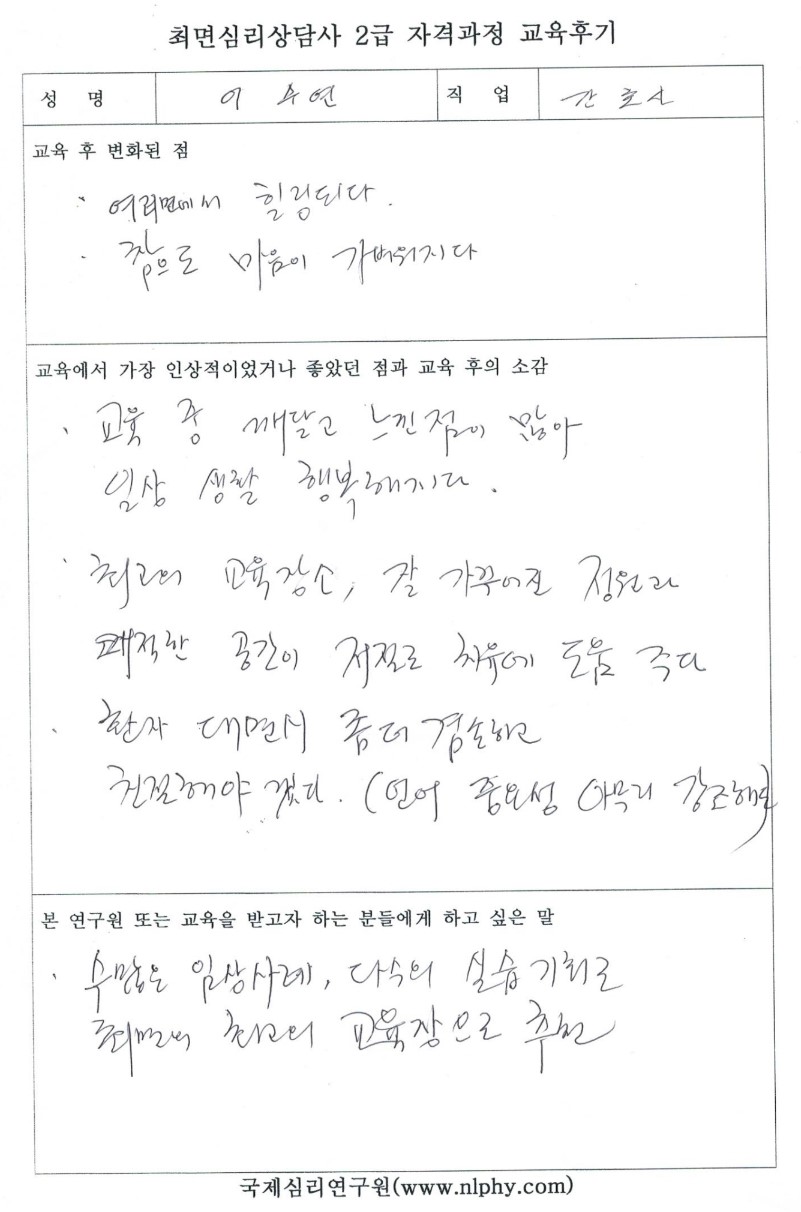 최면심리상담사 2급 자격과정 교육후기
성 명 이 수연 직 업 간호사
교육 후 변화된 점
· 여러면에서 힐링되다.
· 참으로 마음이 가벼워지다
교육에서 가장 인상적이었거나 좋았던 점과 교육 후의 소감
· 교육 중 깨달고 느낀점이 많아
일상 생활 행복해지다.
· 최고의 교육장소, 잘 가꾸어진 정원과
쾌적한 공간이 저절로 치유에 도움 주다
· 환자 대면시 좀더 겸손하고
친절해야 겠다. (언어 중요성 아무리 강조해도)
본 연구원 또는 교육을 받고자 하는 분들에게 하고 싶은 말
· 수많은 임상사례, 다수의 실습기회로
최면의 최고의 교육장으로 추천
국제심리연구원(www.nlphy.com)